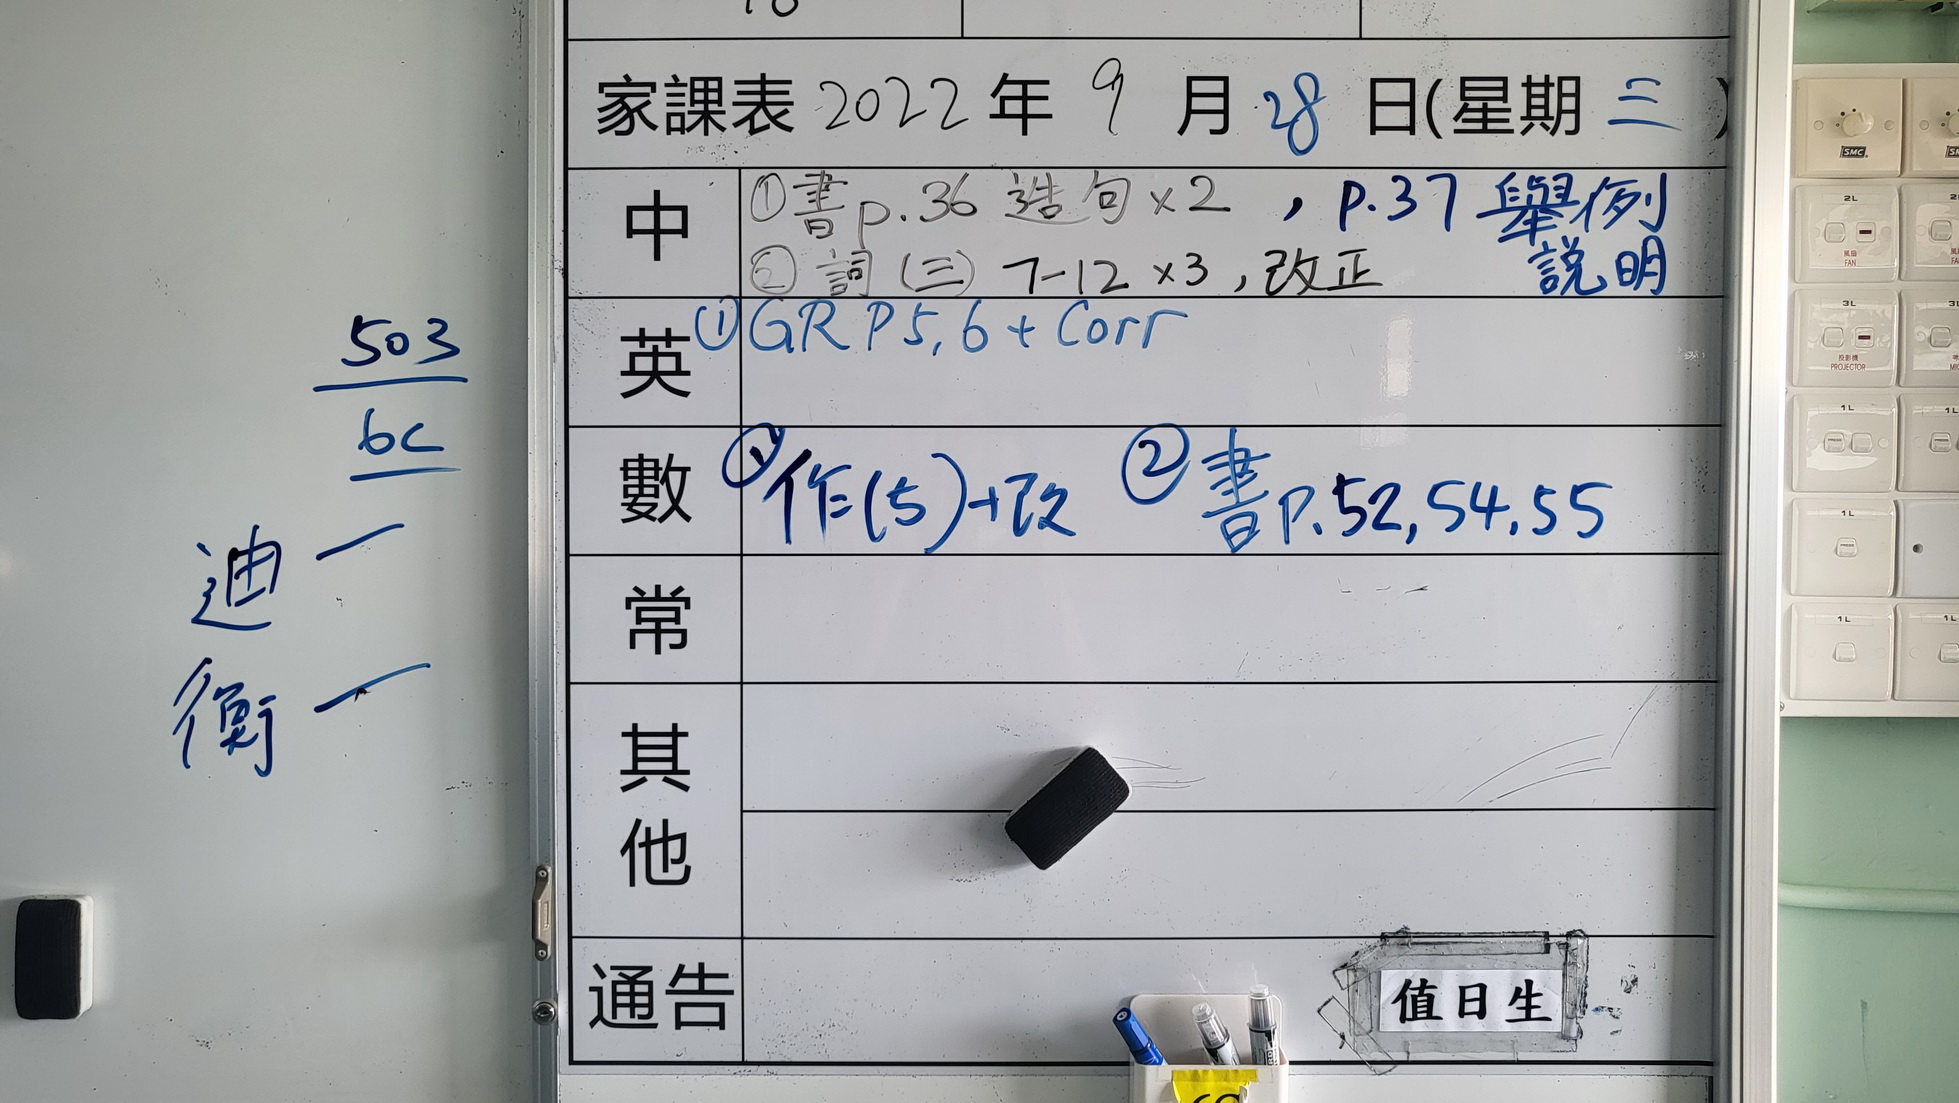 家課表 2022 年 9 月 28 日(星期 三 )
中
①書p.36 造句×2 , p.37 舉例
說明
② 詞 (三) 7-12 ×3 , 改正
英
① GR P5,6 + Corr
數
① 作(5)+改 ② 書p.52,54,55
常
其他
通告
值日生
503
6C
迪 一
衡 一
SMC
2L
風扇
FAN
3L
投影機
PROJECTOR
1L
1L
1L
1L
1L